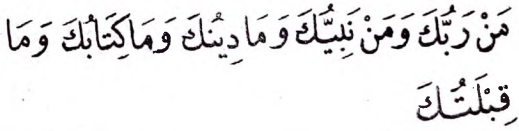 مَنْ رَبُّكَ وَمَنْ نَبِيُّكَ وَمَا دِيْنُكَ وَمَا كِتَابُكَ وَمَا
قِبْلَتُكَ